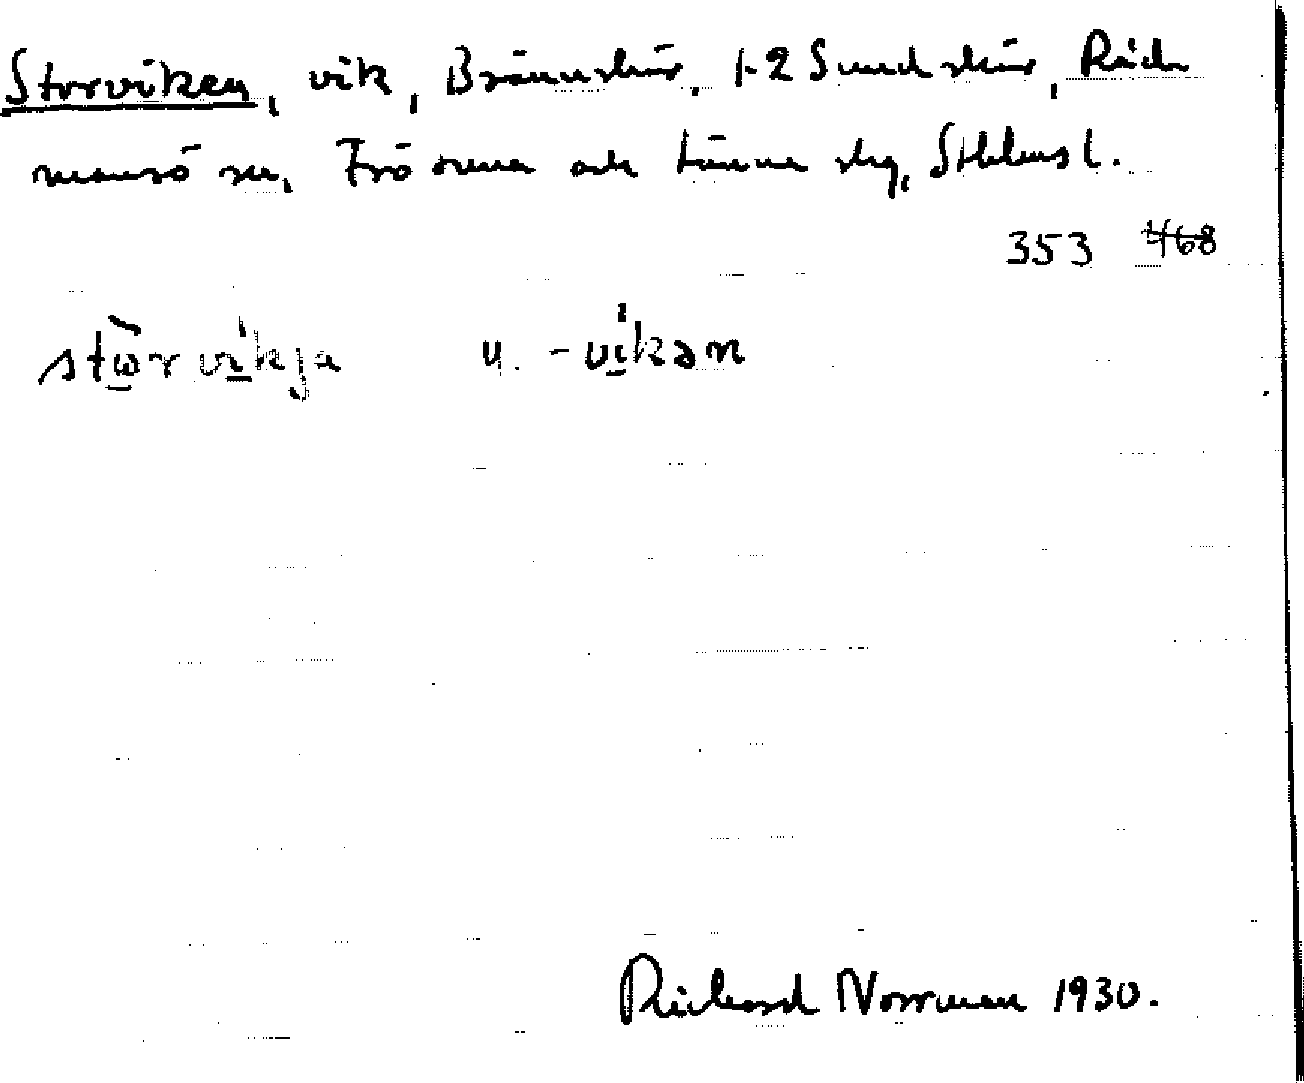 Storviken, vik, Brännskär, 1-2 Sundskär, Råd-
mansö sn, Frösunda och Länna skg, Sthlms l.
353 468
stω̄rvikja u. -vikən
Richard Norrman 1930.